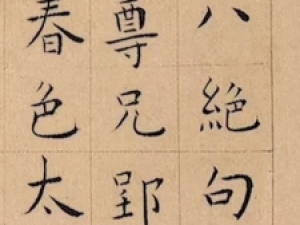 八絕句
尊兄郢
春色太